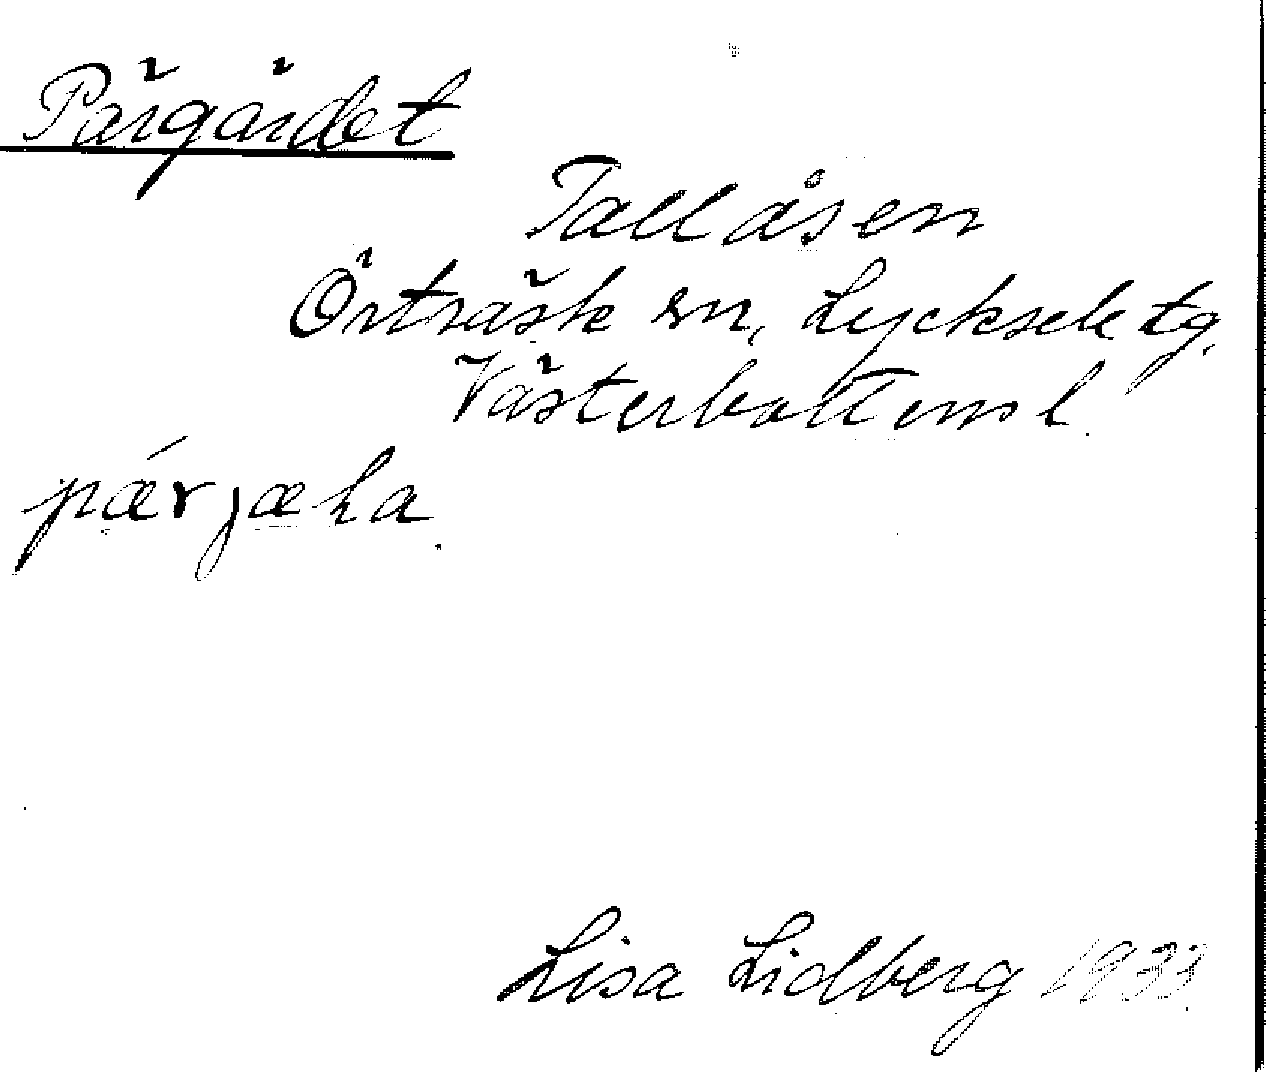 Pärgärdet
Tallåsen
Örträsk sn, Lycksele tg.
Västerbottens l.
pǽrjæḷa.
Lisa Lidberg 1933.